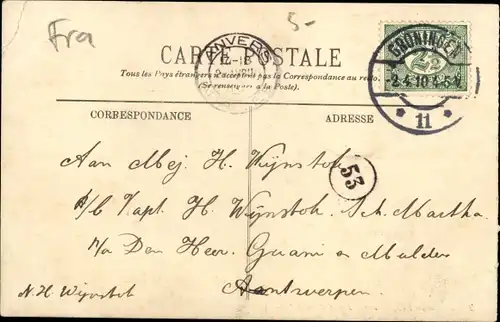 Fra
5-
ANVERS
GRONINGEN
2½
2.4.10 4-5 V
11
CARTE POSTALE
Tous les Pays étrangers n'acceptent pas la Correspondance au recto.
(Se renseigner à la Poste).
CORRESPONDANCE
ADRESSE
Aan Mej. H. Wijnstok
a/b Kapt. H. Wijnstok. Sch. Martha
53
p/a Den Heer. Guani en Mulder
N.H. Wijnstok
Antwerpen.